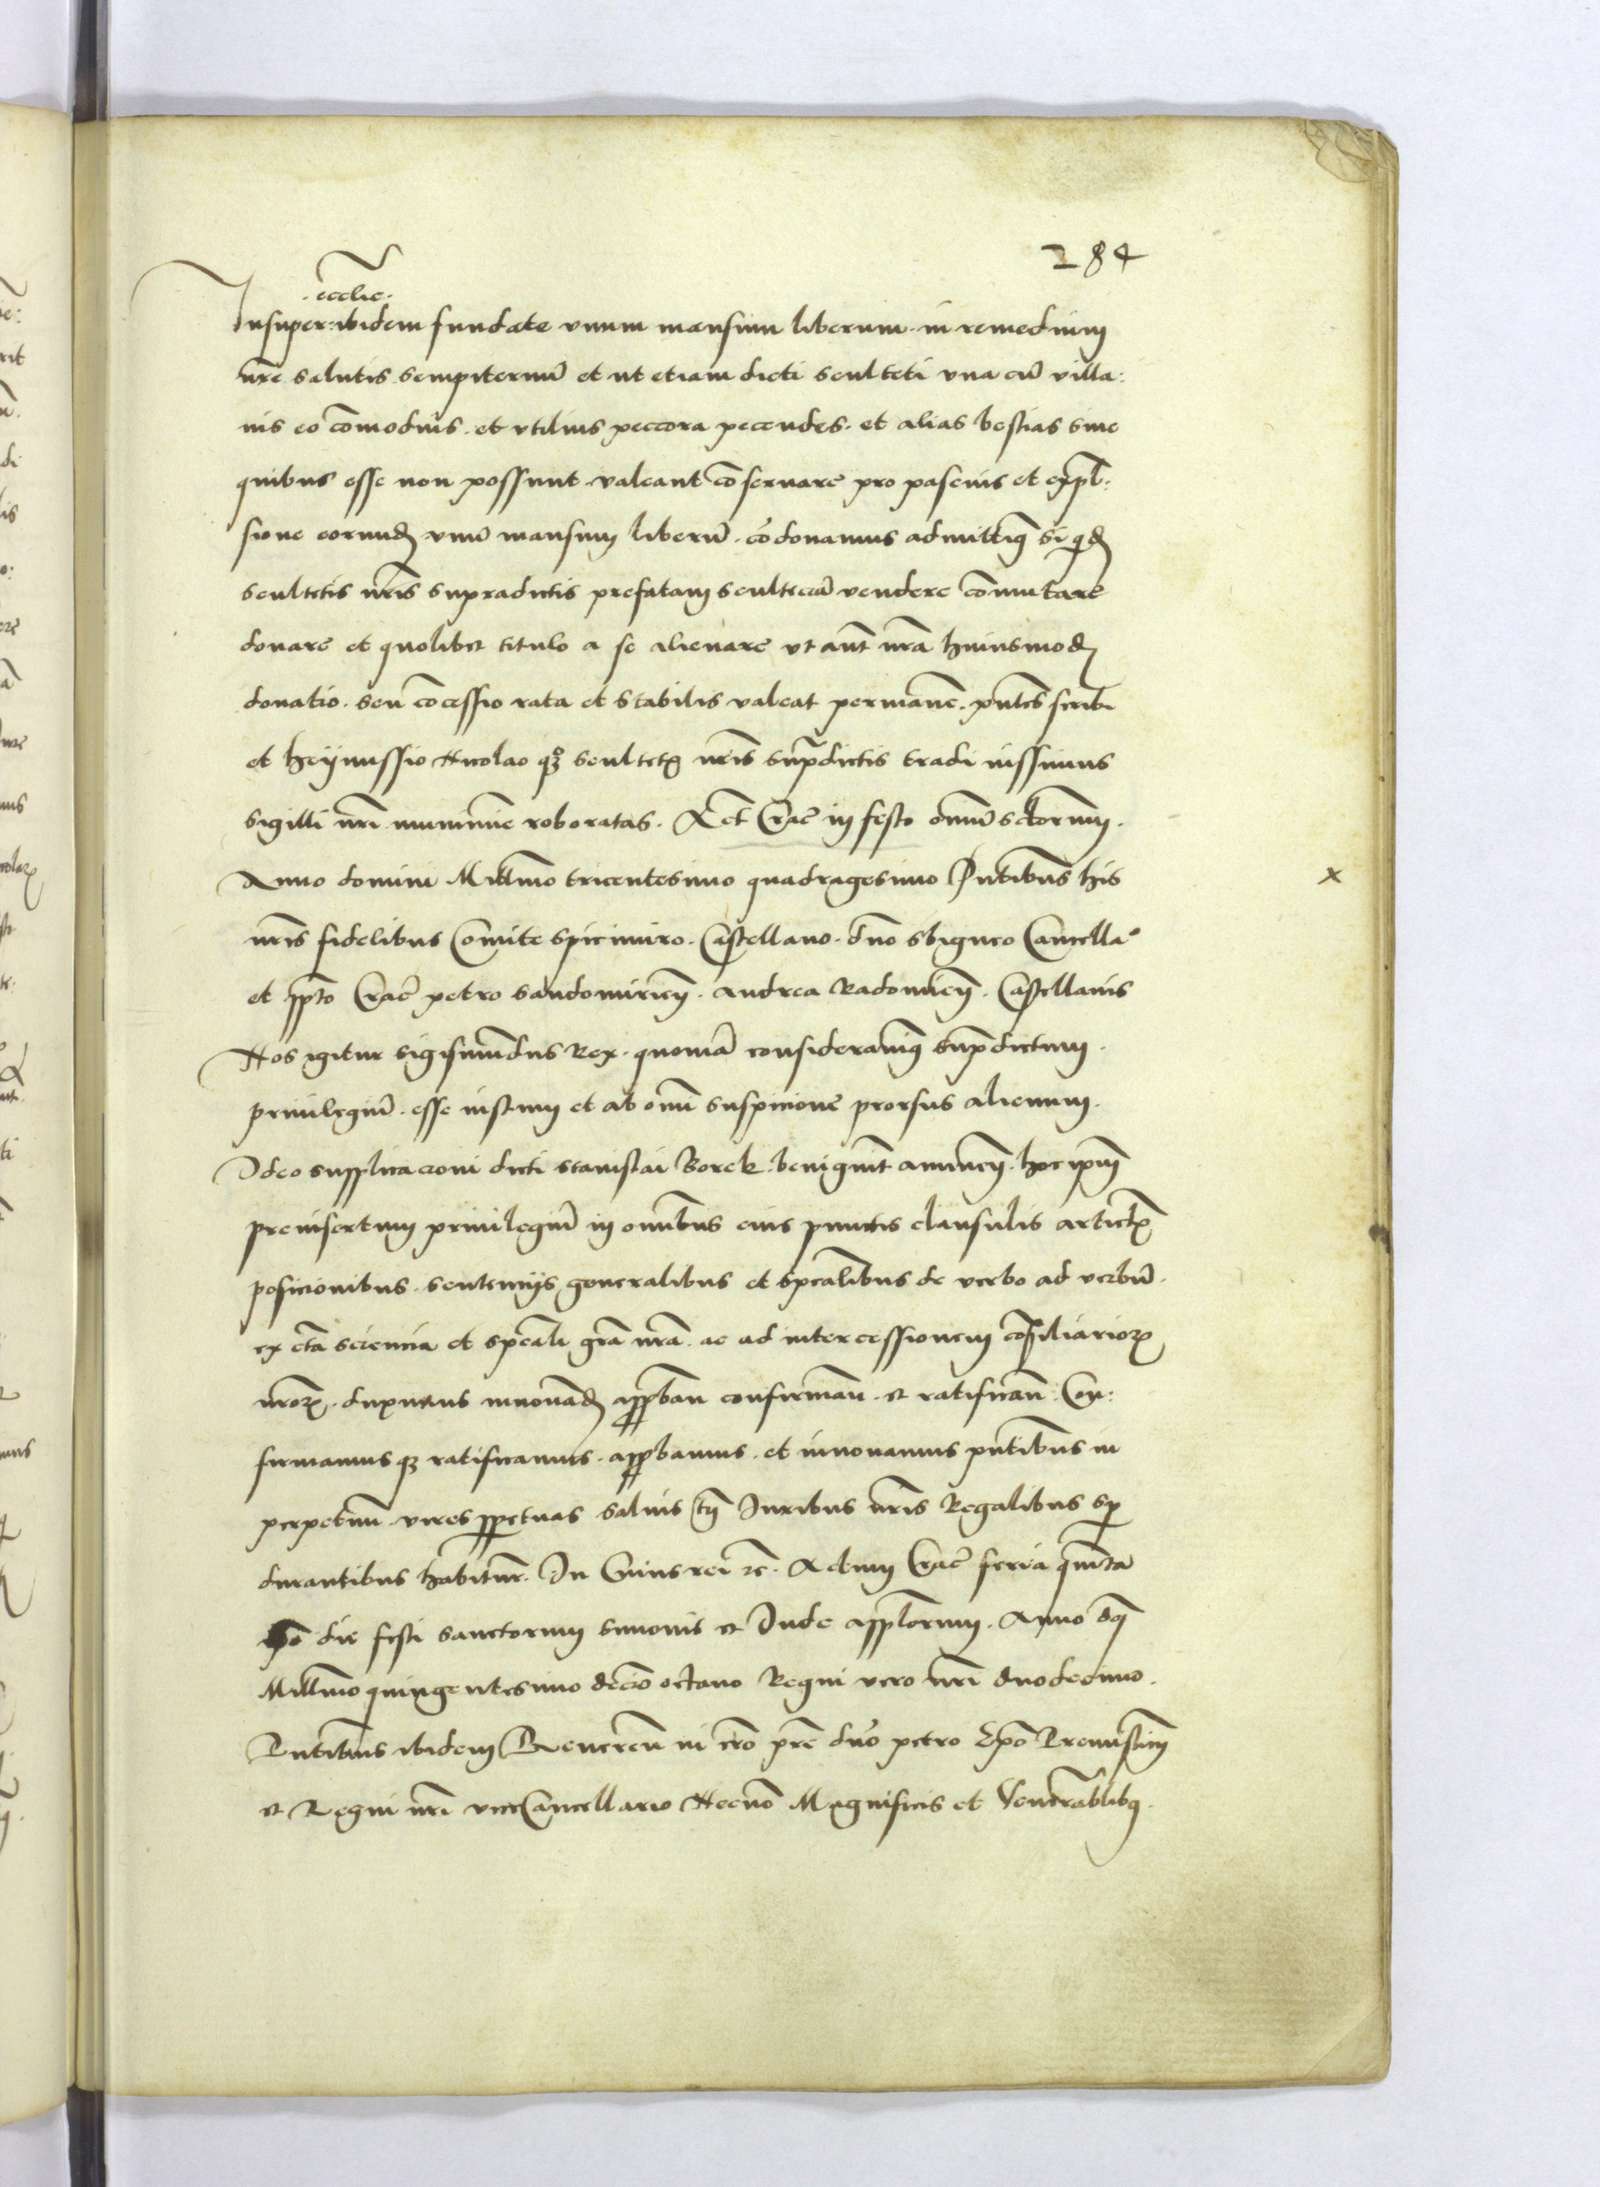 284
ecclie
Insuper ibidem fundate vnum mansum liberum in remedium
nre salutis sempiternu et ut etiam dicti sculteti vna cu villa:
nis eo comodius et vtilius peccora pecudes et alias bestias sine
quibus esse non possunt valeant conseruare pro pascuis et expl:
sione eorund vnu mansum liberu condonamus admittimq
scultetis nris supradictis prefatam scultecia vendere comutare
donare et quolibet titulo a se alienare vt aut nra huiusmod
donatio seu concessio rata et stabilis valeat permane pntes scribi
et heynussio Nicolao qz scultet nris supdictis tradi iussimus
sigilli nri munimie roboratas Act Crac in festo omniu sctorum
Anno domini Millimo tricentesimo quadragesimo Pntibus his
nris fidelibus Comite spicimiro Castellano dno sbigneo Cancella
et ppto Crac petro sandomirien Andrea Radomien Castellanis
Nos igitur sigismundus Rex quonia considerantes supdictum
priuilegiu esse iustum et ab omi suspicione prorsus alienum
Ideo supplicacioni dicti stanislai Borek benignit annuen hoc ipm
preinsertum priuilegiu in omibus eius punctis clausulis articlis
posicionibus sentencys generalibus et spealibus de verbo ad verbu
ex cta sciencia et speali gra nra ac ad intercessionem consiliarior
nror duximus innouand approban confirman et ratifican Con:
firmamus qz ratificamus approbamus et innouamus pntibus in
perpetuu vires ppetuas saluis tn Iuribus nris Regalibus sp
durantibus habitur In Cuius rei zc Actum Crac feria quinta
ipso die festi sanctorum simonis et Iude applorum Anno dni
Millimo quingentesimo decio octauo Regni vero nri duodecimo
Pntibus ibidem Reueren in cro pre dno petro Epo Premislien
et Regni nri viceCancellario Necno Magnificis et Venerablibq
x